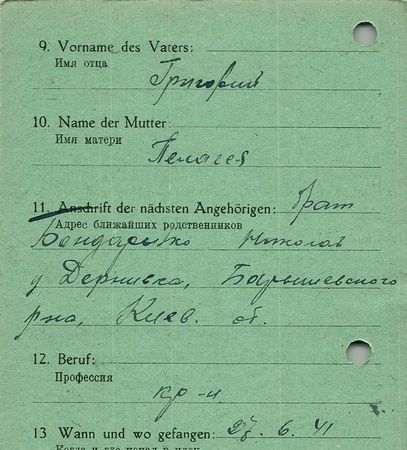 9. Vorname des Vaters:
Имя отца
Григорий
10. Name der Mutter:
Имя матери
Пелагея
11. Anschrift der nächsten Angehörigen: брат
Адрес ближайших родственников
Бондаренко Николай
д Дернивка, Барышевского
р-на, Киев. об.
12. Beruf:
Профессия
кр-н
13 Wann und wo gefangen: 27. 6. 41
Когда и где попал в плен